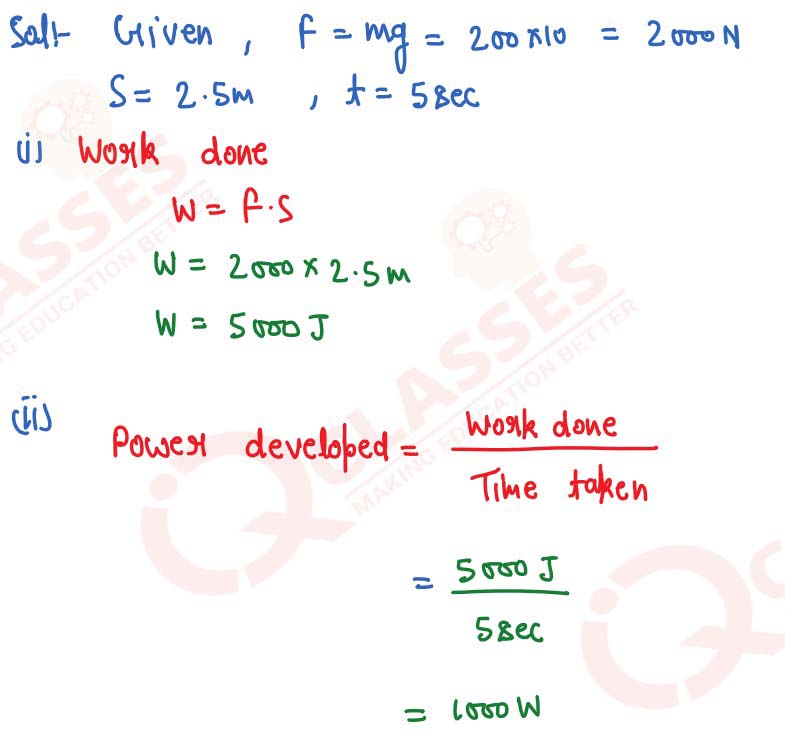 Sol:- Given, F = mg = 200×10 = 2000N
S = 2.5m , t = 5sec
(i) Work done
W = F.S
W = 2000 × 2.5m
W = 5000 J
(ii)
Power developed = Work done / Time taken
= 5000 J / 5sec
= 1000 W
CLASSES
MAKING EDUCATION BETTER
iQ CLASSES
MAKING EDUCATION BETTER
iQ C